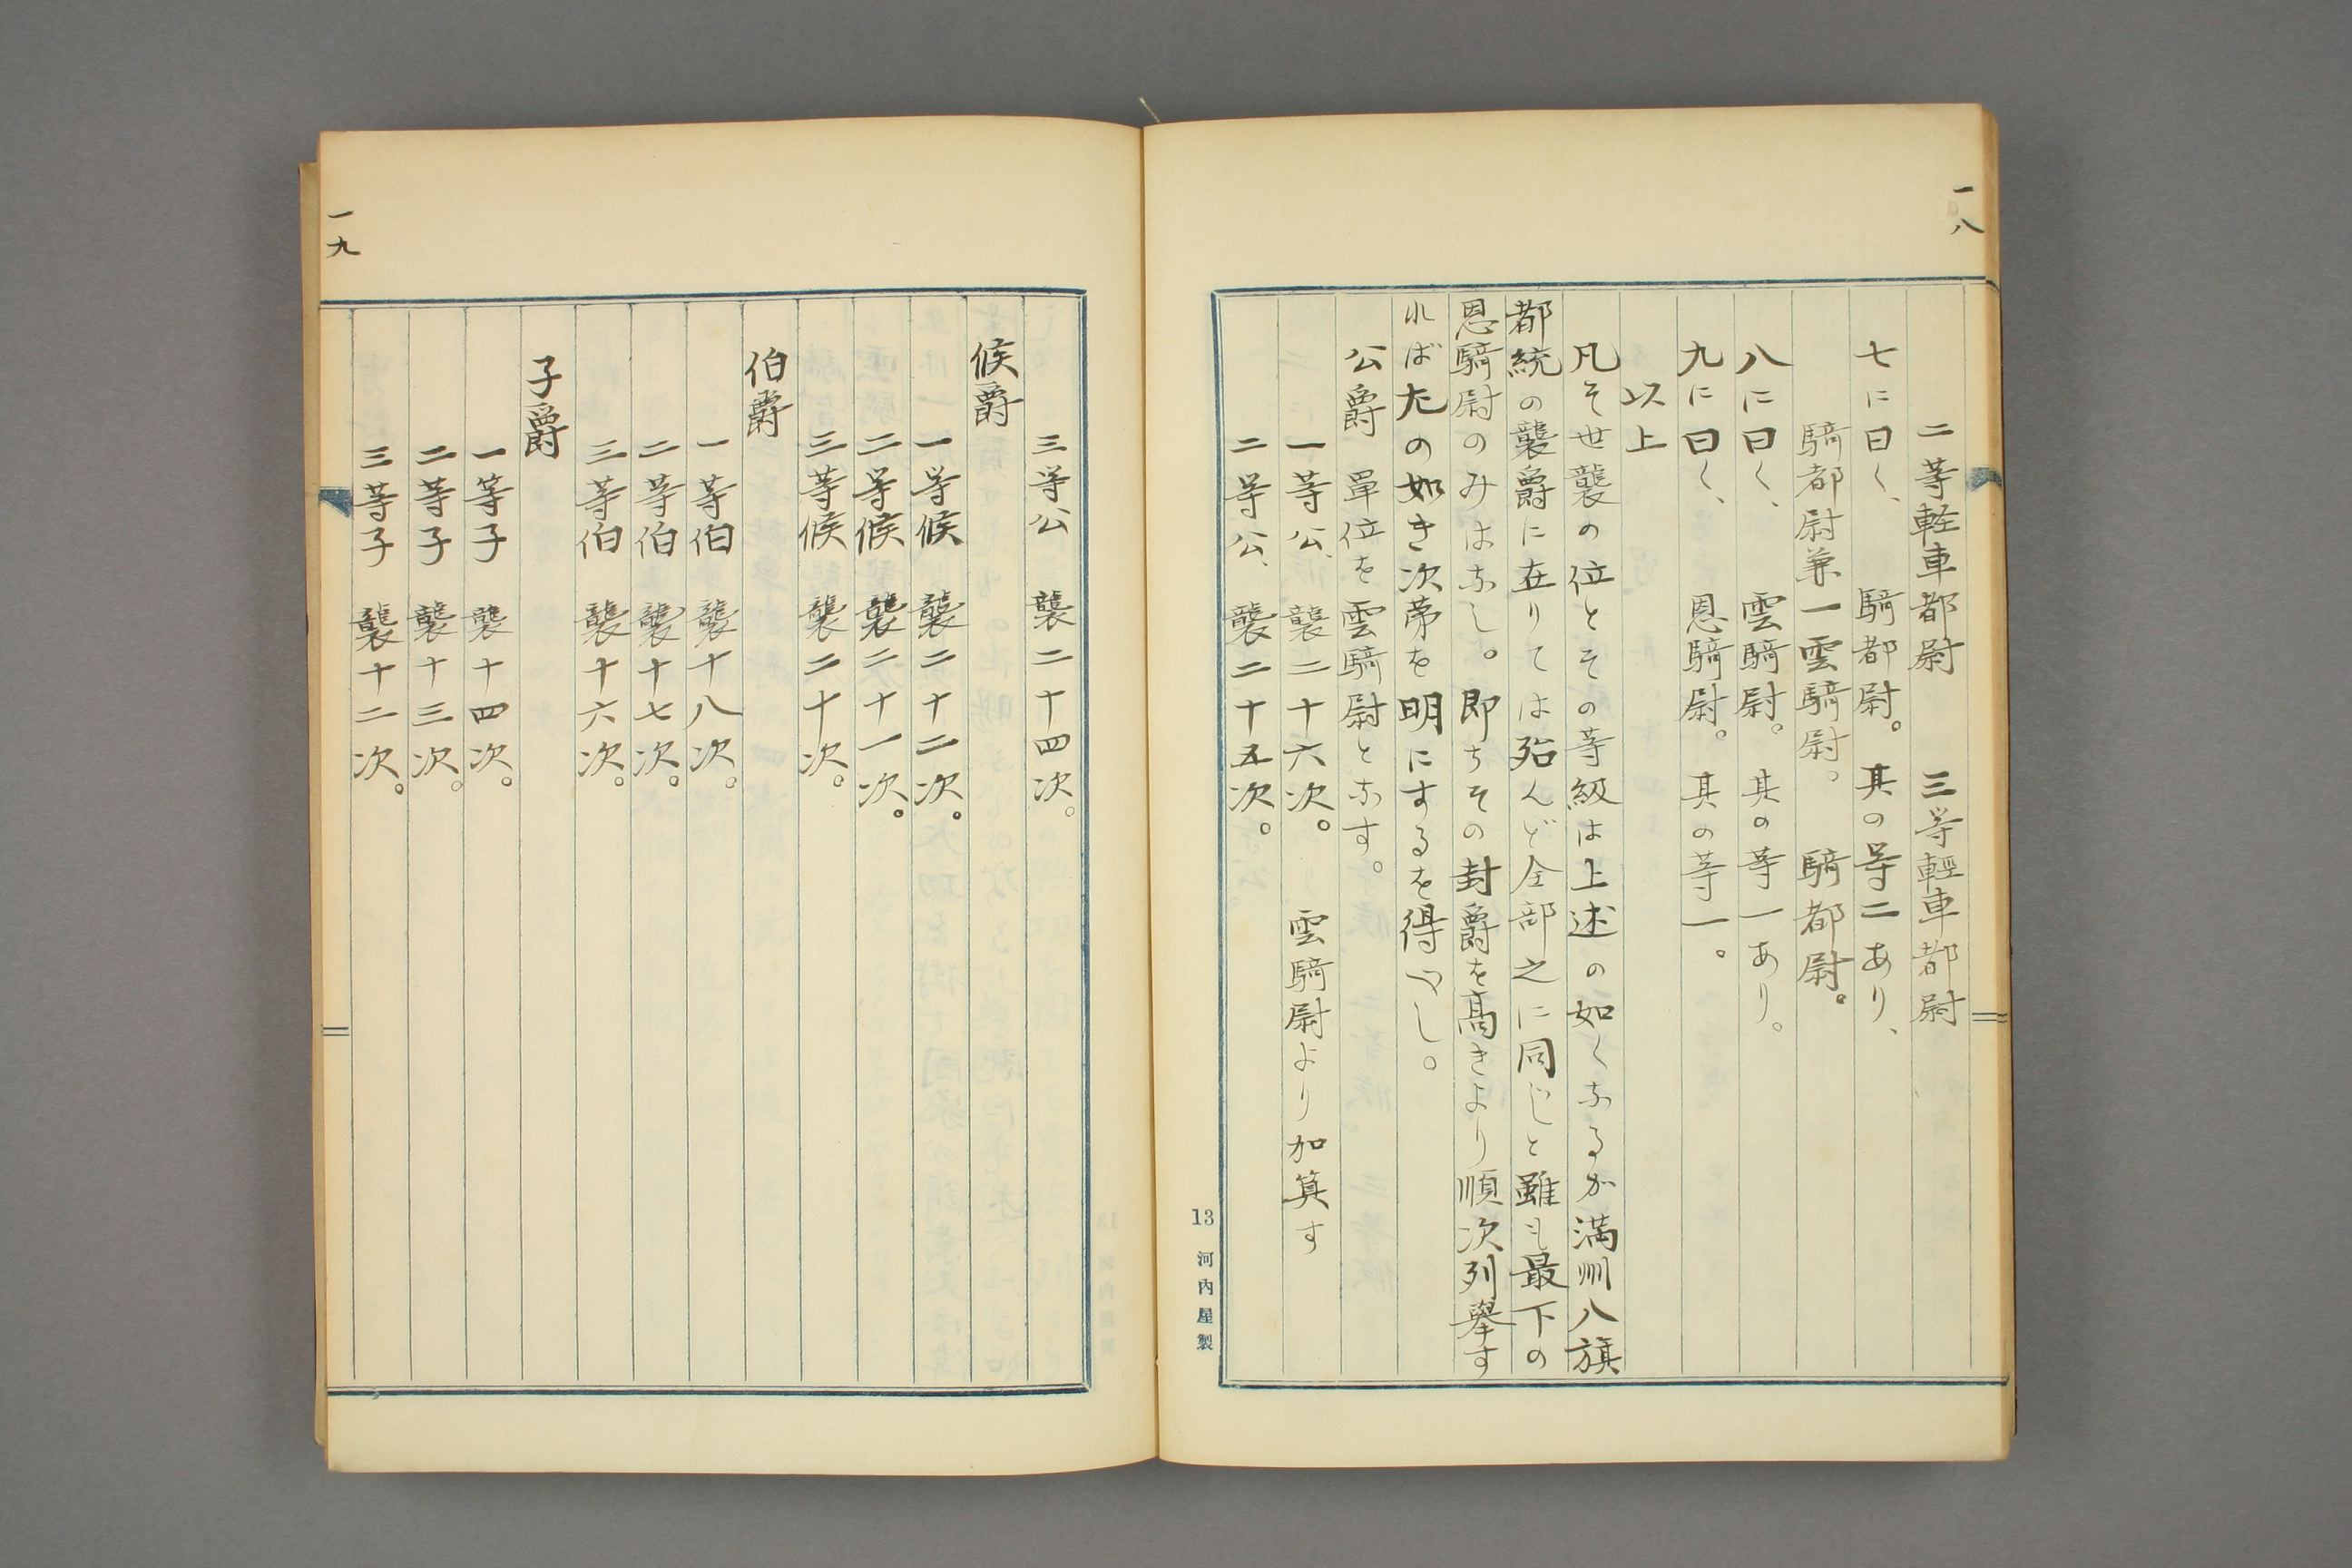 一八
二等軽車都尉　三等輕車都尉
七に曰く、　騎都尉。其の等二あり、
騎都尉兼一雲騎尉。　騎都尉。
八に曰く、　雲騎尉。其の等一あり。
九に曰く、　恩騎尉。其の等一。
以上
凡そ世襲の位とその等級は上述の如くなるが満洲八旗
都統の襲爵に在りては殆んど全部之に同じと雖も最下の
恩騎尉のみはなし。即ちその封爵を髙きより順次列擧す
れば左の如き次第を明にするを得べし。
公爵　單位を雲騎尉となす。
一等公、襲二十六次。　雲騎尉より加算す
二等公、襲二十五次。
13 河内屋製
一九
三等公　襲二十四次。
候爵
一等候　襲二十二次。
二等候　襲二十一次。
三等候　襲二十次。
伯爵
一等伯　襲十八次。
二等伯　襲十七次。
三等伯　襲十六次。
子爵
一等子　襲十四次。
二等子　襲十三次。
三等子　襲十二次。